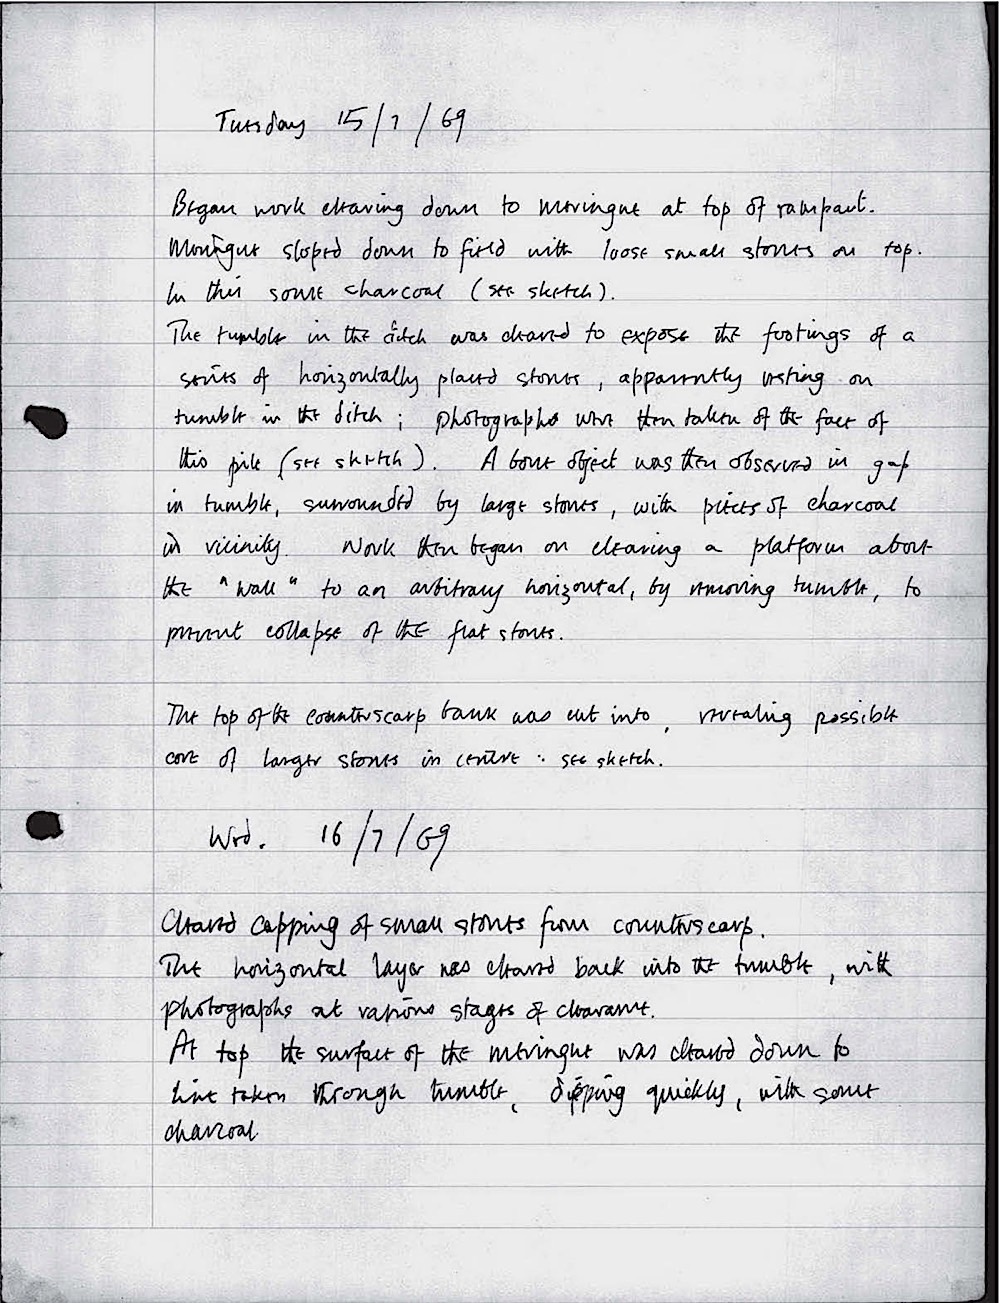 Tuesday 15/7/69
Began work clearing down to meringue at top of rampart.
Meringue sloped down to field with loose small stones on top.
In this some charcoal (see sketch).
The tumble in the ditch was cleared to expose the footings of a
series of horizontally placed stones, apparently resting on
tumble in the ditch; photographs were then taken of the face of
this pile (see sketch). A bone object was then observed in gap
in tumble, surrounded by large stones, with pieces of charcoal
in vicinity. Work then began on clearing a platform about
the "wall" to an arbitrary horizontal, by removing tumble, to
prevent collapse of the flat stones.
The top of the counterscarp bank was cut into, revealing possible
core of larger stones in centre : see sketch.
Wed. 16/7/69
Cleared capping of small stones from counterscarp.
The horizontal layer was cleared back into the tumble, with
photographs at various stages of clearance.
At top the surface of the meringue was cleared down to
line taken through tumble, dipping quickly, with some
charcoal